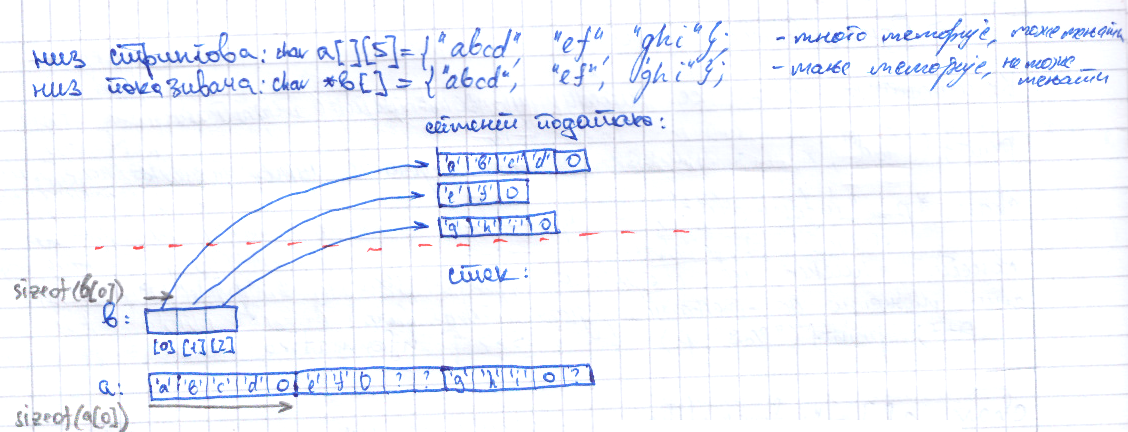 низ стрингова: char a[][5]={"abcd", "ef" "ghi"}; - много меморије, може мењати
низ показивача: char *b[] = {"abcd", "ef", "ghi"}; - мање меморије, не може мењати
сегмент података:
'a' 'b' 'c' 'd' 0
'e' 'f' 0
'g' 'h' 'i' 0
стек:
sizeof(b[0])
b:
[0] [1] [2]
a: 'a' 'b' 'c' 'd' 0 'e' 'f' 0 ? ? 'g' 'h' 'i' 0 ?
sizeof(a[0])